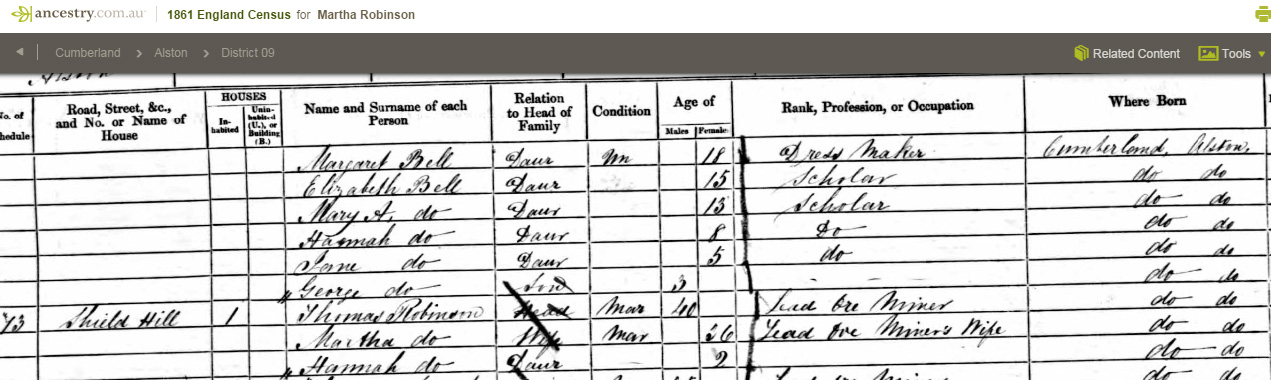 ancestry.com.au 1861 England Census for Martha Robinson
Cumberland Alston District 09 Related Content Tools
No. of Schedule Road, Street, &c., and No. or Name of House HOUSES In-habited Unin-habited (U.), or Building (B.) Name and Surname of each Person Relation to Head of Family Condition Age of Males Females Rank, Profession, or Occupation Where Born
Margaret Bell Daur Un 18 Dress Maker Cumberland, Alston,
Elizabeth Bell Daur 15 Scholar do do
Mary A. do Daur 13 Scholar do do
Hannah do Daur 8 Do do do
Jane do Daur 5 do do do
George do Son 3 do do
73 Shield Hill 1 Thomas Robinson Head Mar 40 Lead Ore Miner do do
Martha do Wife Mar 36 Lead Ore Miner's Wife do do
Hannah do Daur 2 do do
Lead Ore Miner do do